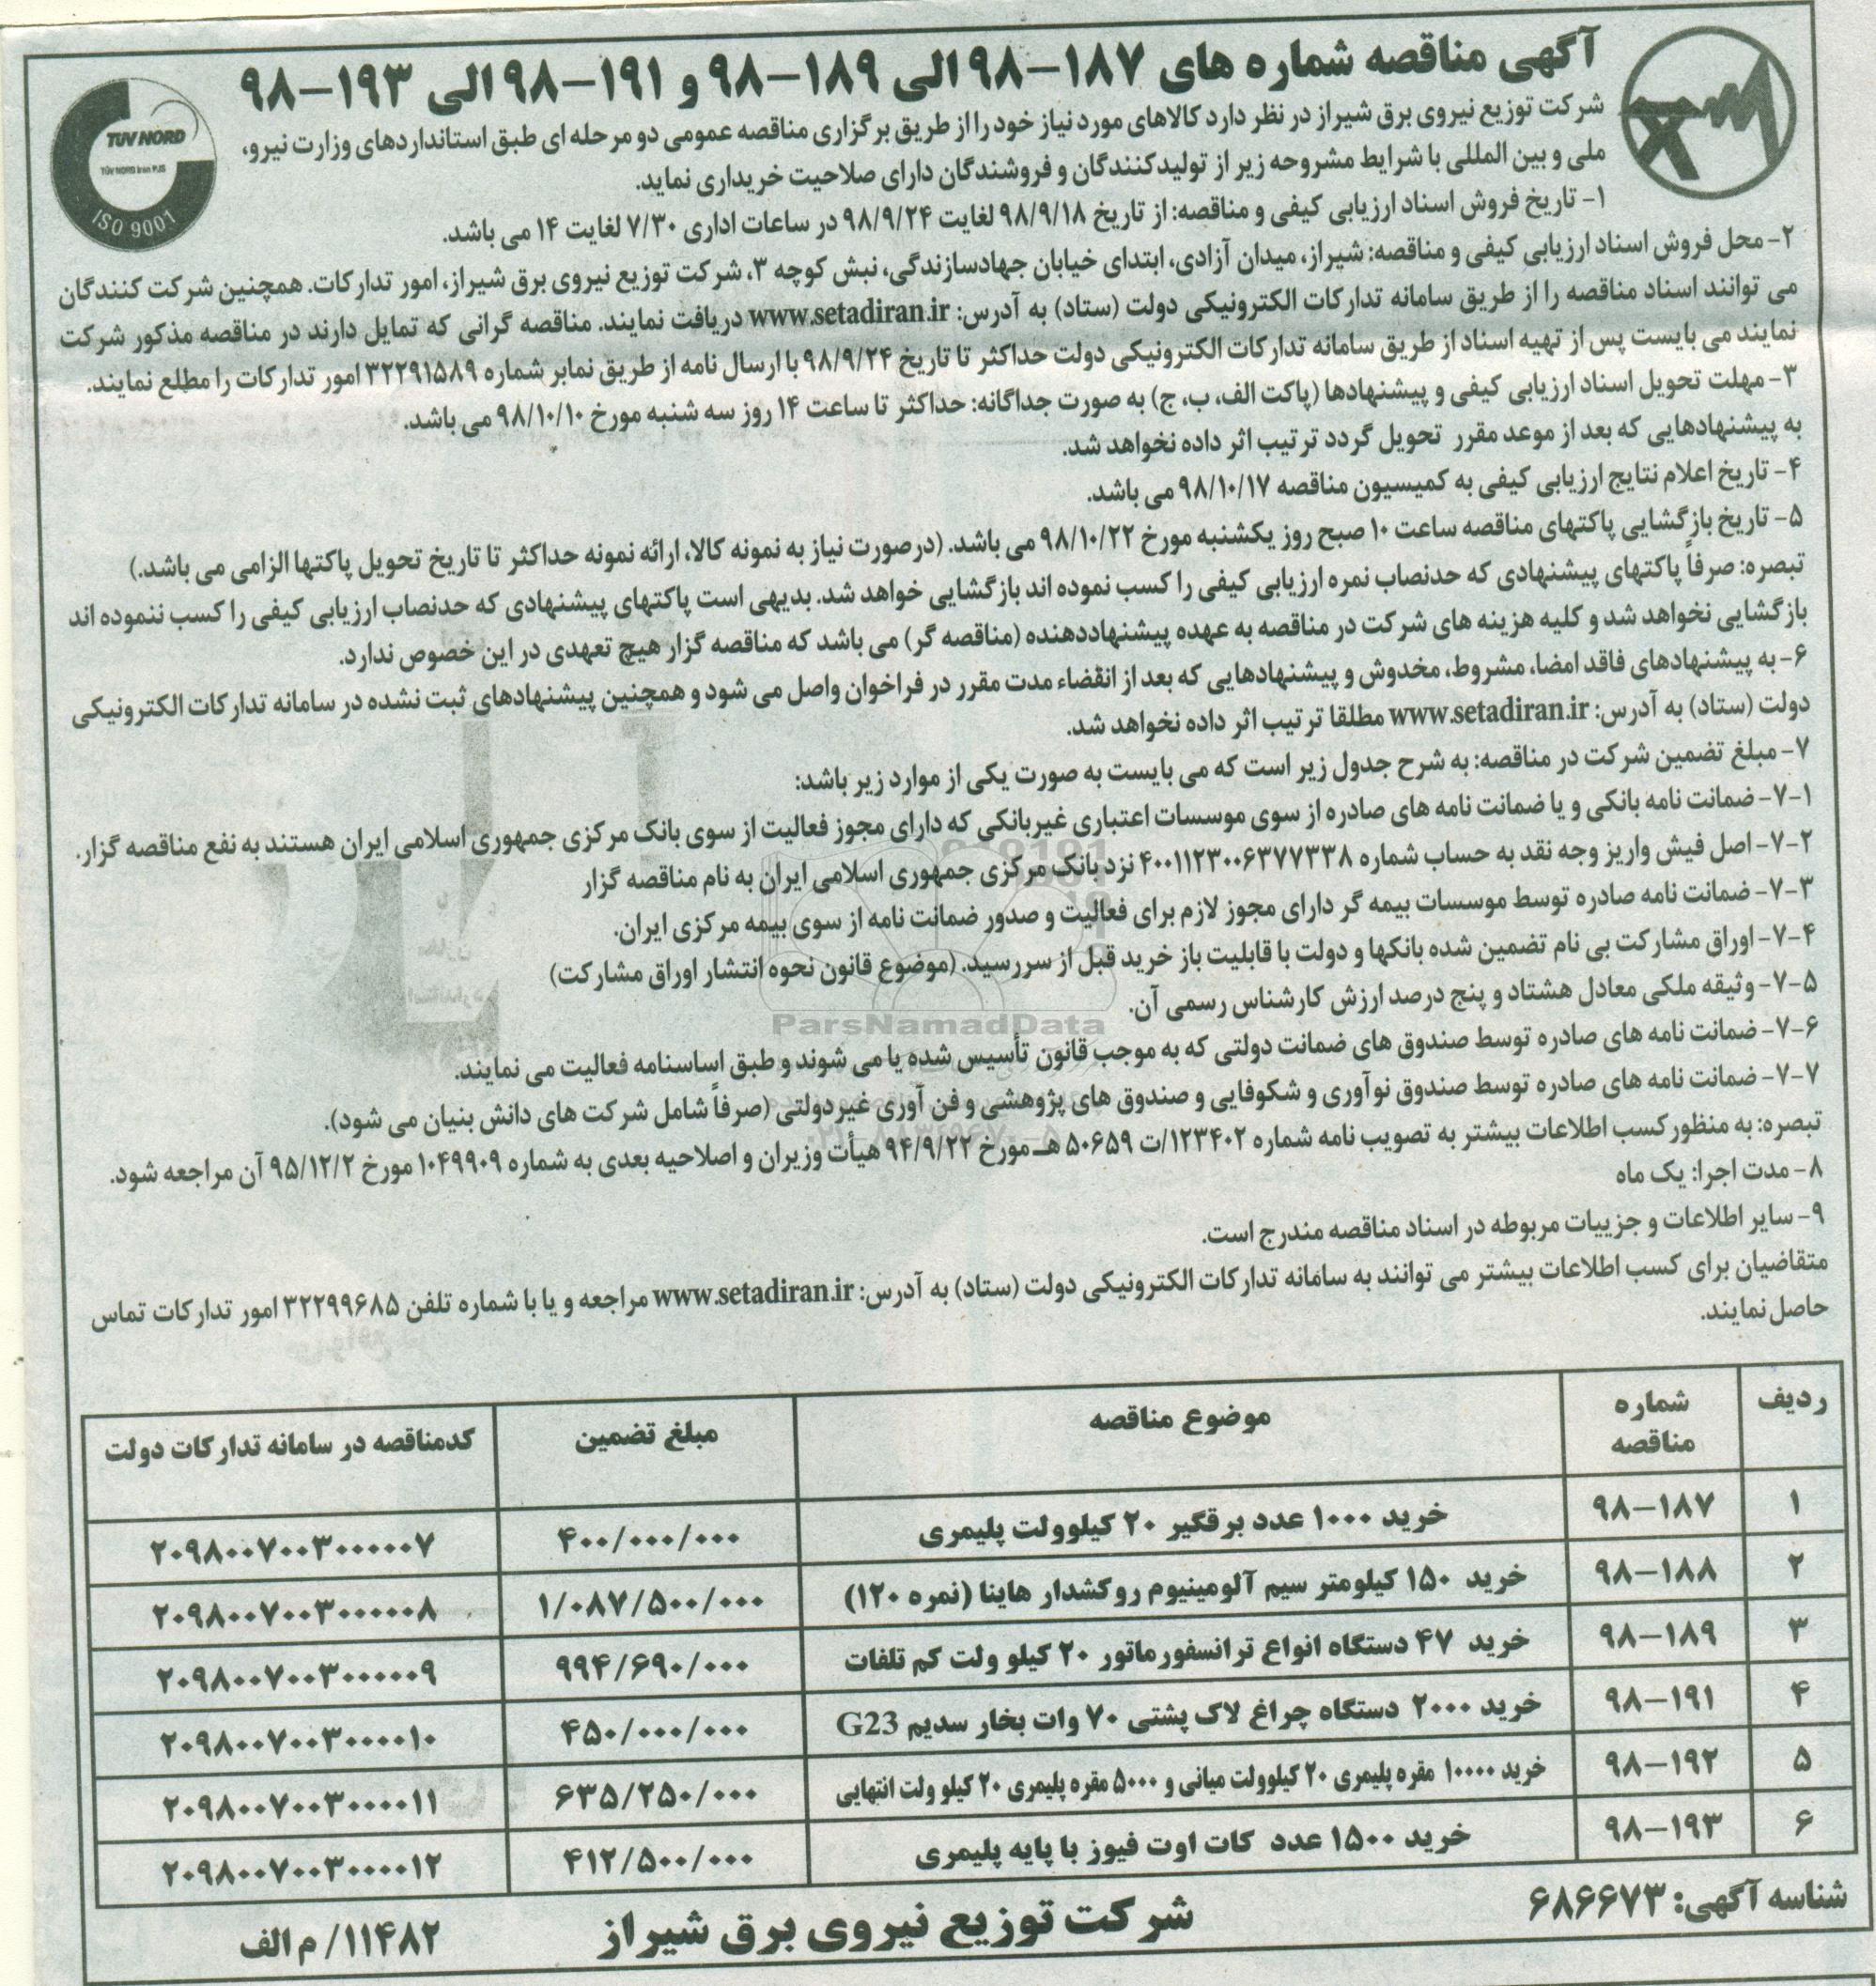 آگهی مناقصه شماره های ۱۸۷-۹۸ الی ۱۸۹-۹۸ و ۱۹۱-۹۸ الی ۱۹۳-۹۸
TUV NORD
TÜV NORD Iran PJS
ISO 9001
شرکت توزیع نیروی برق شیراز در نظر دارد کالاهای مورد نیاز خود را از طریق برگزاری مناقصه عمومی دو مرحله ای طبق استانداردهای وزارت نیرو،
ملی و بین المللی با شرایط مشروحه زیر از تولیدکنندگان و فروشندگان دارای صلاحیت خریداری نماید.
۱- تاریخ فروش اسناد ارزیابی کیفی و مناقصه: از تاریخ ۹۸/۹/۱۸ لغایت ۹۸/۹/۲۴ در ساعات اداری ۷/۳۰ لغایت ۱۴ می باشد.
۲- محل فروش اسناد ارزیابی کیفی و مناقصه: شیراز، میدان آزادی، ابتدای خیابان جهادسازندگی، نبش کوچه ۳، شرکت توزیع نیروی برق شیراز، امور تدارکات. همچنین شرکت کنندگان
می توانند اسناد مناقصه را از طریق سامانه تدارکات الکترونیکی دولت (ستاد) به آدرس: www.setadiran.ir دریافت نمایند. مناقصه گرانی که تمایل دارند در مناقصه مذکور شرکت
نمایند می بایست پس از تهیه اسناد از طریق سامانه تدارکات الکترونیکی دولت حداکثر تا تاریخ ۹۸/۹/۲۴ با ارسال نامه از طریق نمابر شماره ۳۲۲۹۱۵۸۹ امور تدارکات را مطلع نمایند.
۳- مهلت تحویل اسناد ارزیابی کیفی و پیشنهادها (پاکت الف، ب، ج) به صورت جداگانه: حداکثر تا ساعت ۱۴ روز سه شنبه مورخ ۹۸/۱۰/۱۰ می باشد.
به پیشنهادهایی که بعد از موعد مقرر تحویل گردد ترتیب اثر داده نخواهد شد.
۴- تاریخ اعلام نتایج ارزیابی کیفی به کمیسیون مناقصه ۹۸/۱۰/۱۷ می باشد.
۵- تاریخ بازگشایی پاکتهای مناقصه ساعت ۱۰ صبح روز یکشنبه مورخ ۹۸/۱۰/۲۲ می باشد. (درصورت نیاز به نمونه کالا، ارائه نمونه حداکثر تا تاریخ تحویل پاکتها الزامی می باشد.)
تبصره: صرفاً پاکتهای پیشنهادی که حدنصاب نمره ارزیابی کیفی را کسب نموده اند بازگشایی خواهد شد. بدیهی است پاکتهای پیشنهادی که حدنصاب ارزیابی کیفی را کسب ننموده اند
بازگشایی نخواهد شد و کلیه هزینه های شرکت در مناقصه به عهده پیشنهاددهنده (مناقصه گر) می باشد که مناقصه گزار هیچ تعهدی در این خصوص ندارد.
۶- به پیشنهادهای فاقد امضا، مشروط، مخدوش و پیشنهادهایی که بعد از انقضاء مدت مقرر در فراخوان واصل می شود و همچنین پیشنهادهای ثبت نشده در سامانه تدارکات الکترونیکی
دولت (ستاد) به آدرس: www.setadiran.ir مطلقا ترتیب اثر داده نخواهد شد.
۷- مبلغ تضمین شرکت در مناقصه: به شرح جدول زیر است که می بایست به صورت یکی از موارد زیر باشد:
۷-۱- ضمانت نامه بانکی و یا ضمانت نامه های صادره از سوی موسسات اعتباری غیربانکی که دارای مجوز فعالیت از سوی بانک مرکزی جمهوری اسلامی ایران هستند به نفع مناقصه گزار.
۷-۲- اصل فیش واریز وجه نقد به حساب شماره ۴۰۰۱۱۲۳۰۰۶۳۷۷۳۳۸ نزد بانک مرکزی جمهوری اسلامی ایران به نام مناقصه گزار
۷-۳- ضمانت نامه صادره توسط موسسات بیمه گر دارای مجوز لازم برای فعالیت و صدور ضمانت نامه از سوی بیمه مرکزی ایران.
۷-۴- اوراق مشارکت بی نام تضمین شده بانکها و دولت با قابلیت باز خرید قبل از سررسید. (موضوع قانون نحوه انتشار اوراق مشارکت)
۷-۵- وثیقه ملکی معادل هشتاد و پنج درصد ارزش کارشناس رسمی آن.
ParsNamadData
۷-۶- ضمانت نامه های صادره توسط صندوق های ضمانت دولتی که به موجب قانون تأسیس شده یا می شوند و طبق اساسنامه فعالیت می نمایند.
۷-۷- ضمانت نامه های صادره توسط صندوق نوآوری و شکوفایی و صندوق های پژوهشی و فن آوری غیردولتی (صرفاً شامل شرکت های دانش بنیان می شود).
تبصره: به منظور کسب اطلاعات بیشتر به تصویب نامه شماره ۱۲۳۴۰۲/ت ۵۰۶۵۹ هـ مورخ ۹۴/۹/۲۲ هیأت وزیران و اصلاحیه بعدی به شماره ۱۰۴۹۹۰۹ مورخ ۹۵/۱۲/۲ آن مراجعه شود.
۸- مدت اجرا: یک ماه
۹- سایر اطلاعات و جزییات مربوطه در اسناد مناقصه مندرج است.
متقاضیان برای کسب اطلاعات بیشتر می توانند به سامانه تدارکات الکترونیکی دولت (ستاد) به آدرس: www.setadiran.ir مراجعه و یا با شماره تلفن ۳۲۲۹۹۶۸۵ امور تدارکات تماس
حاصل نمایند.
ردیف شماره مناقصه موضوع مناقصه مبلغ تضمین کدمناقصه در سامانه تدارکات دولت
۱ ۹۸-۱۸۷ خرید ۱۰۰۰ عدد برقگیر ۲۰ کیلوولت پلیمری ۴۰۰/۰۰۰/۰۰۰ ۲۰۹۸۰۰۷۰۰۳۰۰۰۰۰۷
۲ ۹۸-۱۸۸ خرید ۱۵۰ کیلومتر سیم آلومینیوم روکشدار هاینا (نمره ۱۲۰) ۱/۰۸۷/۵۰۰/۰۰۰ ۲۰۹۸۰۰۷۰۰۳۰۰۰۰۰۸
۳ ۹۸-۱۸۹ خرید ۴۷ دستگاه انواع ترانسفورماتور ۲۰ کیلو ولت کم تلفات ۹۹۴/۶۹۰/۰۰۰ ۲۰۹۸۰۰۷۰۰۳۰۰۰۰۰۹
۴ ۹۸-۱۹۱ خرید ۲۰۰۰ دستگاه چراغ لاک پشتی ۷۰ وات بخار سدیم G23 ۴۵۰/۰۰۰/۰۰۰ ۲۰۹۸۰۰۷۰۰۳۰۰۰۰۱۰
۵ ۹۸-۱۹۲ خرید ۱۰۰۰۰ مقره پلیمری ۲۰ کیلوولت میانی و ۵۰۰۰ مقره پلیمری ۲۰ کیلو ولت انتهایی ۶۳۵/۲۵۰/۰۰۰ ۲۰۹۸۰۰۷۰۰۳۰۰۰۰۱۱
۶ ۹۸-۱۹۳ خرید ۱۵۰۰ عدد کات اوت فیوز با پایه پلیمری ۴۱۲/۵۰۰/۰۰۰ ۲۰۹۸۰۰۷۰۰۳۰۰۰۰۱۲
شناسه آگهی: ۶۸۶۶۷۳
شرکت توزیع نیروی برق شیراز
۱۱۴۸۲/ م الف